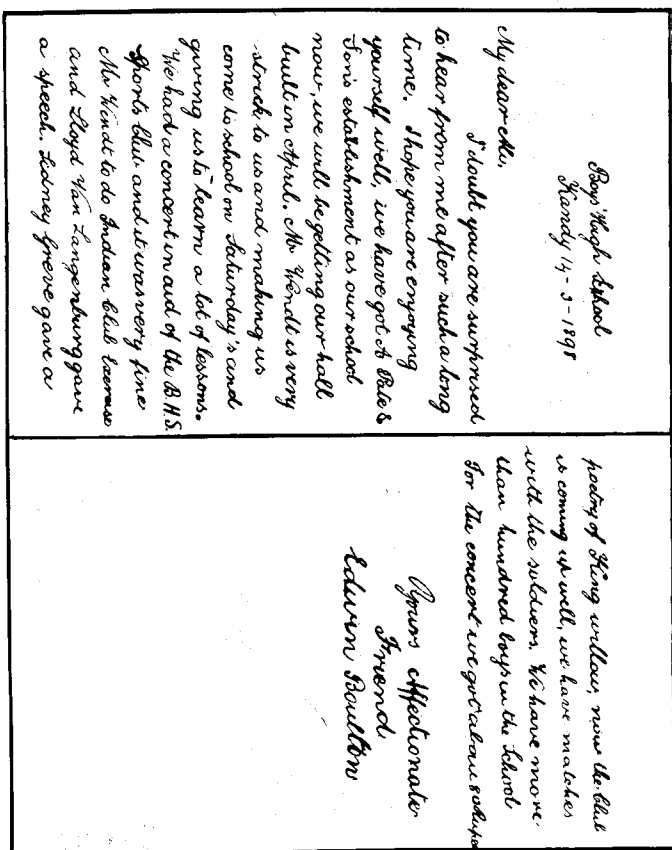 Boys' High School
Kandy 14-3-1898
My dear Mr.
I doubt you are surprised
to hear from me after such a long
time. I hope you are enjoying
yourself well, we have got A Pate &
Son's establishment as our school
now, we will be getting our hall
built in April. Mr Wendt is very
strick to us and making us
come to school on Saturday's and
giving us to learn a lot of lessons.
We had a concert in aid of the B.H.S.
Sports blub and it was very fine
Mr Wendt to do Indian blub Exercise
and Lloyd Van Langenburg gave
a speech. Sidney Greve gave a
poetry of King willow, now the blub
is coming up well, we have matches
with the soldiers. We have more
than hundred boys in the School
For the concert we got about 80 Rupe
Yours Affectionate
Friend
Edwin Boulton